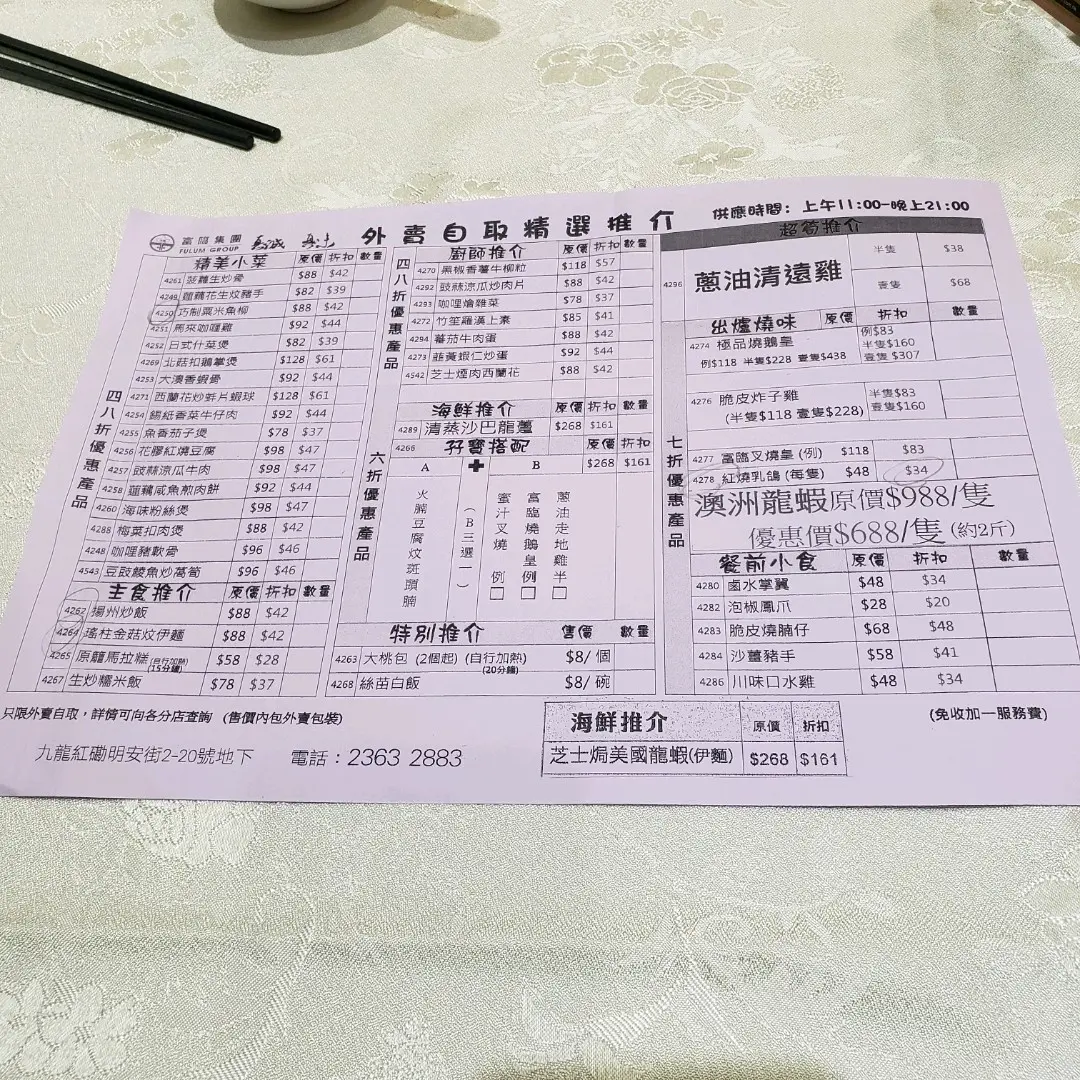 富臨集團
FULUM GROUP
外賣自取精選推介
供應時間：上午11:00-晚上21:00
四八折優惠產品
精美小菜 原價 折扣 數量
4261 菠蘿生炒骨 $88 $42
4249 蓮藕花生炆豬手 $82 $39
4250 巧制粟米魚柳 $88 $42
4251 馬來咖喱雞 $92 $44
4252 日式什菜煲 $82 $39
4269 北菇扣鵝掌煲 $128 $61
4253 大澳香蝦骨 $92 $44
4271 西蘭花炒蚌片蝦球 $128 $61
4254 錫紙香菜牛仔肉 $92 $44
4255 魚香茄子煲 $78 $37
4256 花膠紅燒豆腐 $98 $47
4257 豉蒜涼瓜牛肉 $98 $47
4258 蓮藕咸魚煎肉餅 $92 $44
4260 海味粉絲煲 $98 $47
4288 梅菜扣肉煲 $88 $42
4248 咖哩豬軟骨 $96 $46
4543 豆豉鯪魚炒萵筍 $96 $46
主食推介 原價 折扣 數量
4262 揚州炒飯 $88 $42
4264 瑤柱金菇炆伊麵 $88 $42
4265 原籠馬拉糕(自行加熱)(15分鐘) $58 $28
4267 生炒糯米飯 $78 $37
四八折優惠產品
廚師推介 原價 折扣 數量
4270 黑椒香薯牛柳粒 $118 $57
4292 豉蒜涼瓜炒肉片 $88 $42
4293 咖哩燴雜菜 $78 $37
4272 竹笙羅漢上素 $85 $41
4294 蕃茄牛肉蛋 $88 $42
4273 韮黃蝦仁炒蛋 $92 $44
4542 芝士煙肉西蘭花 $88 $42
六折優惠產品
海鮮推介 原價 折扣 數量
4289 清蒸沙巴龍躉 $268 $161
4266 孖寶搭配 原價 折扣
A ➕ B $268 $161
火腩豆腐炆斑頭腩
(B三選一)
蜜汁叉燒 例 □
富臨燒鵝皇 例 □
蔥油走地雞 半 □
特別推介 售價 數量
4263 大桃包 (2個起) (自行加熱) (20分鐘) $8/ 個
4268 絲苗白飯 $8/ 碗
超筍推介
4296 蔥油清遠雞 半隻 $38
壹隻 $68
七折優惠產品
出爐燒味 原價 折扣 數量
4274 極品燒鵝皇 例$83
半隻$160
例$118 半隻$228 壹隻$438 壹隻$307
4276 脆皮炸子雞 半隻$83
(半隻$118 壹隻$228) 壹隻$160
4277 富臨叉燒皇 (例) $118 $83
4278 紅燒乳鴿 (每隻) $48 $34
澳洲龍蝦原價$988/隻
優惠價$688/隻 (約2斤)
餐前小食 原價 折扣 數量
4280 鹵水掌翼 $48 $34
4282 泡椒鳳爪 $28 $20
4283 脆皮燒腩仔 $68 $48
4284 沙薑豬手 $58 $41
4286 川味口水雞 $48 $34
只限外賣自取，詳情可向各分店查詢 (售價內包外賣包裝)
(免收加一服務費)
海鮮推介 原價 折扣
芝士焗美國龍蝦(伊麵) $268 $161
九龍紅磡明安街2-20號地下 電話：2363 2883